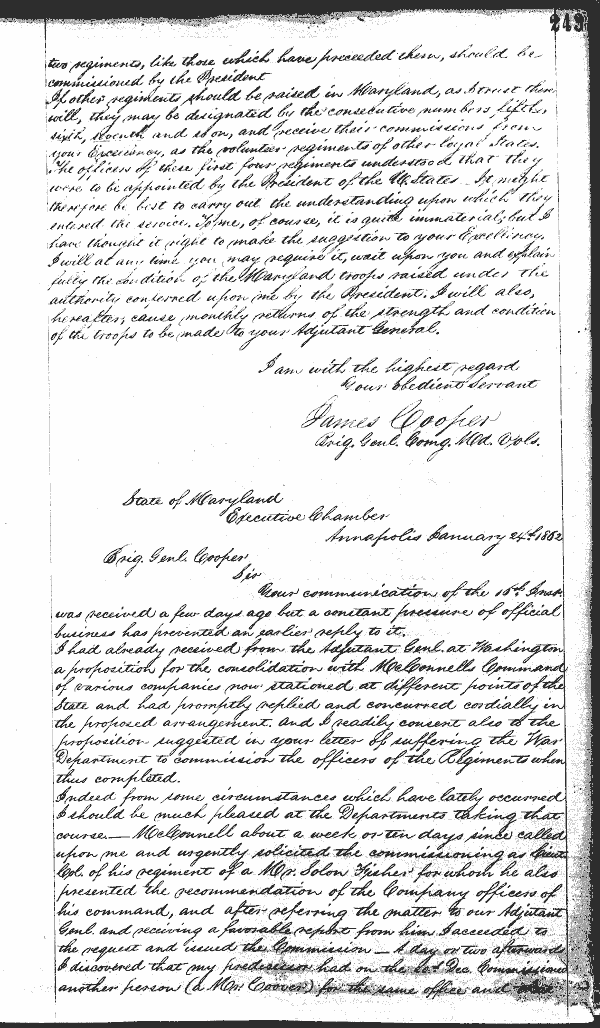 243
two regiments, like those which have preceeded them, should be
commissioned by the President
If other regiments should be raised in Maryland, as I trust they
will, they may be designated by the consecutive numbers, fifth,
sixth, seventh and so on, and receive their commissions from
your Excellency, as the volunteer regiments of other loyal States.
The officers of these first four regiments understood that they
were to be appointed by the President of the U. States. It might
therefore be best to carry out the understanding upon which they
entered the service. To me, of course, it is quite immaterial; but I
have thought it right to make the suggestion to your Excellency.
I will at any time you may require it, wait upon you and explain
fully the condition of the Maryland troops raised under the
authority conferred upon me by the President. I will also,
hereafter, cause monthly returns of the strength and condition
of the troops to be made to your Adjutant General.
I am with the highest regard
Your obedient Servant
James Cooper
Brig. Genl. Comg. Md. Vols.
State of Maryland
Executive Chamber
Annapolis January 24th 1862
Brig. Genl. Cooper
Sir
Your communication of the 16th Inst.
was received a few days ago but a constant pressure of official
business has prevented an earlier reply to it.
I had already received from the Adjutant Genl. at Washington
a proposition for the consolidation with McConnells Command
of various companies now stationed at different points of the
State and had promptly replied and concurred cordially in
the proposed arrangement. And I readily consent also to the
proposition suggested in your letter of suffering the War
Department to commission the officers of the Regiments when
thus completed.
Indeed from some circumstances which have lately occurred
I should be much pleased at the Departments taking that
course. — McConnell about a week or ten days since called
upon me and urgently solicited the commissioning as Lieut
Col. of his regiment of a Mr. Solon Fisher for whom he also
presented the recommendation of the Company officers of
his command, and after referring the matter to our Adjutant
Genl. and receiving a favorable report from him I acceeded to
the request and issued the Commission — A day or two afterwards
I discovered that my predecessor had on the Dec. Commissioned
another person (a Mr. Coover) for the same office and